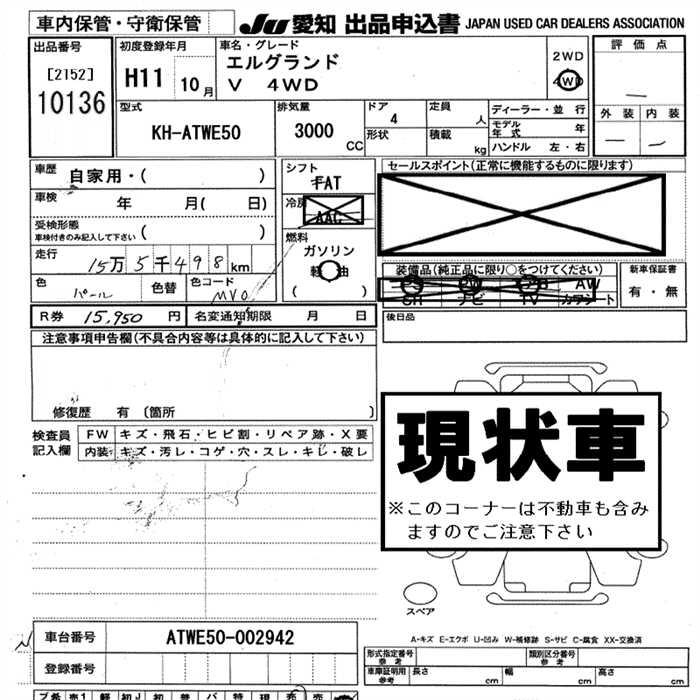 車内保管・守衛保管
JU 愛知 出品申込書 JAPAN USED CAR DEALERS ASSOCIATION
出品番号
[2152]
10136
初度登録年月
H11 10月
車名・グレード
エルグランド
V 4WD
2WD
4WD
評価点
外装 内装
型式
KH-ATWE50
排気量
3000 CC
ドア
4
形状
定員 人
積載 kg
ディーラー・並行
モデル年式 年
ハンドル 左・右
車歴 自家用・( )
車検 年 月( 日)
受検形態
車検付きのみ記入して下さい ( )
走行 15万5千498km
色 パール 色替 色コード MV0
シフト
FAT
冷房
AAC
燃料
ガソリン
軽油
( )
セールスポイント(正常に機能するものに限ります)
装備品(純正品に限り○をつけてください)
PS PW AW
SR ナビ TV カワシート
新車保証書
有・無
R券 15,950 円 名変通知期限 月 日
後日品
注意事項申告欄(不具合内容等は具体的に記入して下さい)
修復歴 有 〔箇所 〕
検査員記入欄
FW キズ・飛石・ヒビ割・リペア跡・X要
内装 キズ・汚レ・コゲ・穴・スレ・キレ・破レ
現状車
※このコーナーは不動車も含み
ますのでご注意下さい
スペア
A-キズ E-エクボ U-凹み W-補修跡 S-サビ C-腐食 XX-交換済
車台番号 ATWE50-002942
登録番号
型式指定番号
参考
類別区分番号
参考
車庫証明用
参考
長さ cm 幅 cm 高さ cm